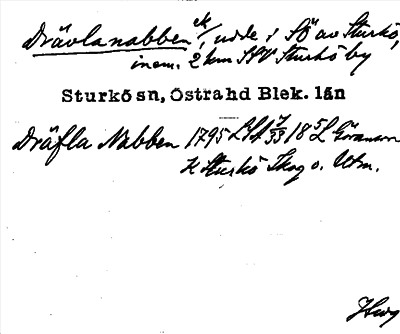 Drävlanabben ek/, udde i SÖ av Sturkö,
inem. 2 km SSV Sturkö by
Sturkö sn, Östra hd Blek. län
Dräfla Nabben 1795 LSA 7/33 18
K Sturkö Skog o. Utm.